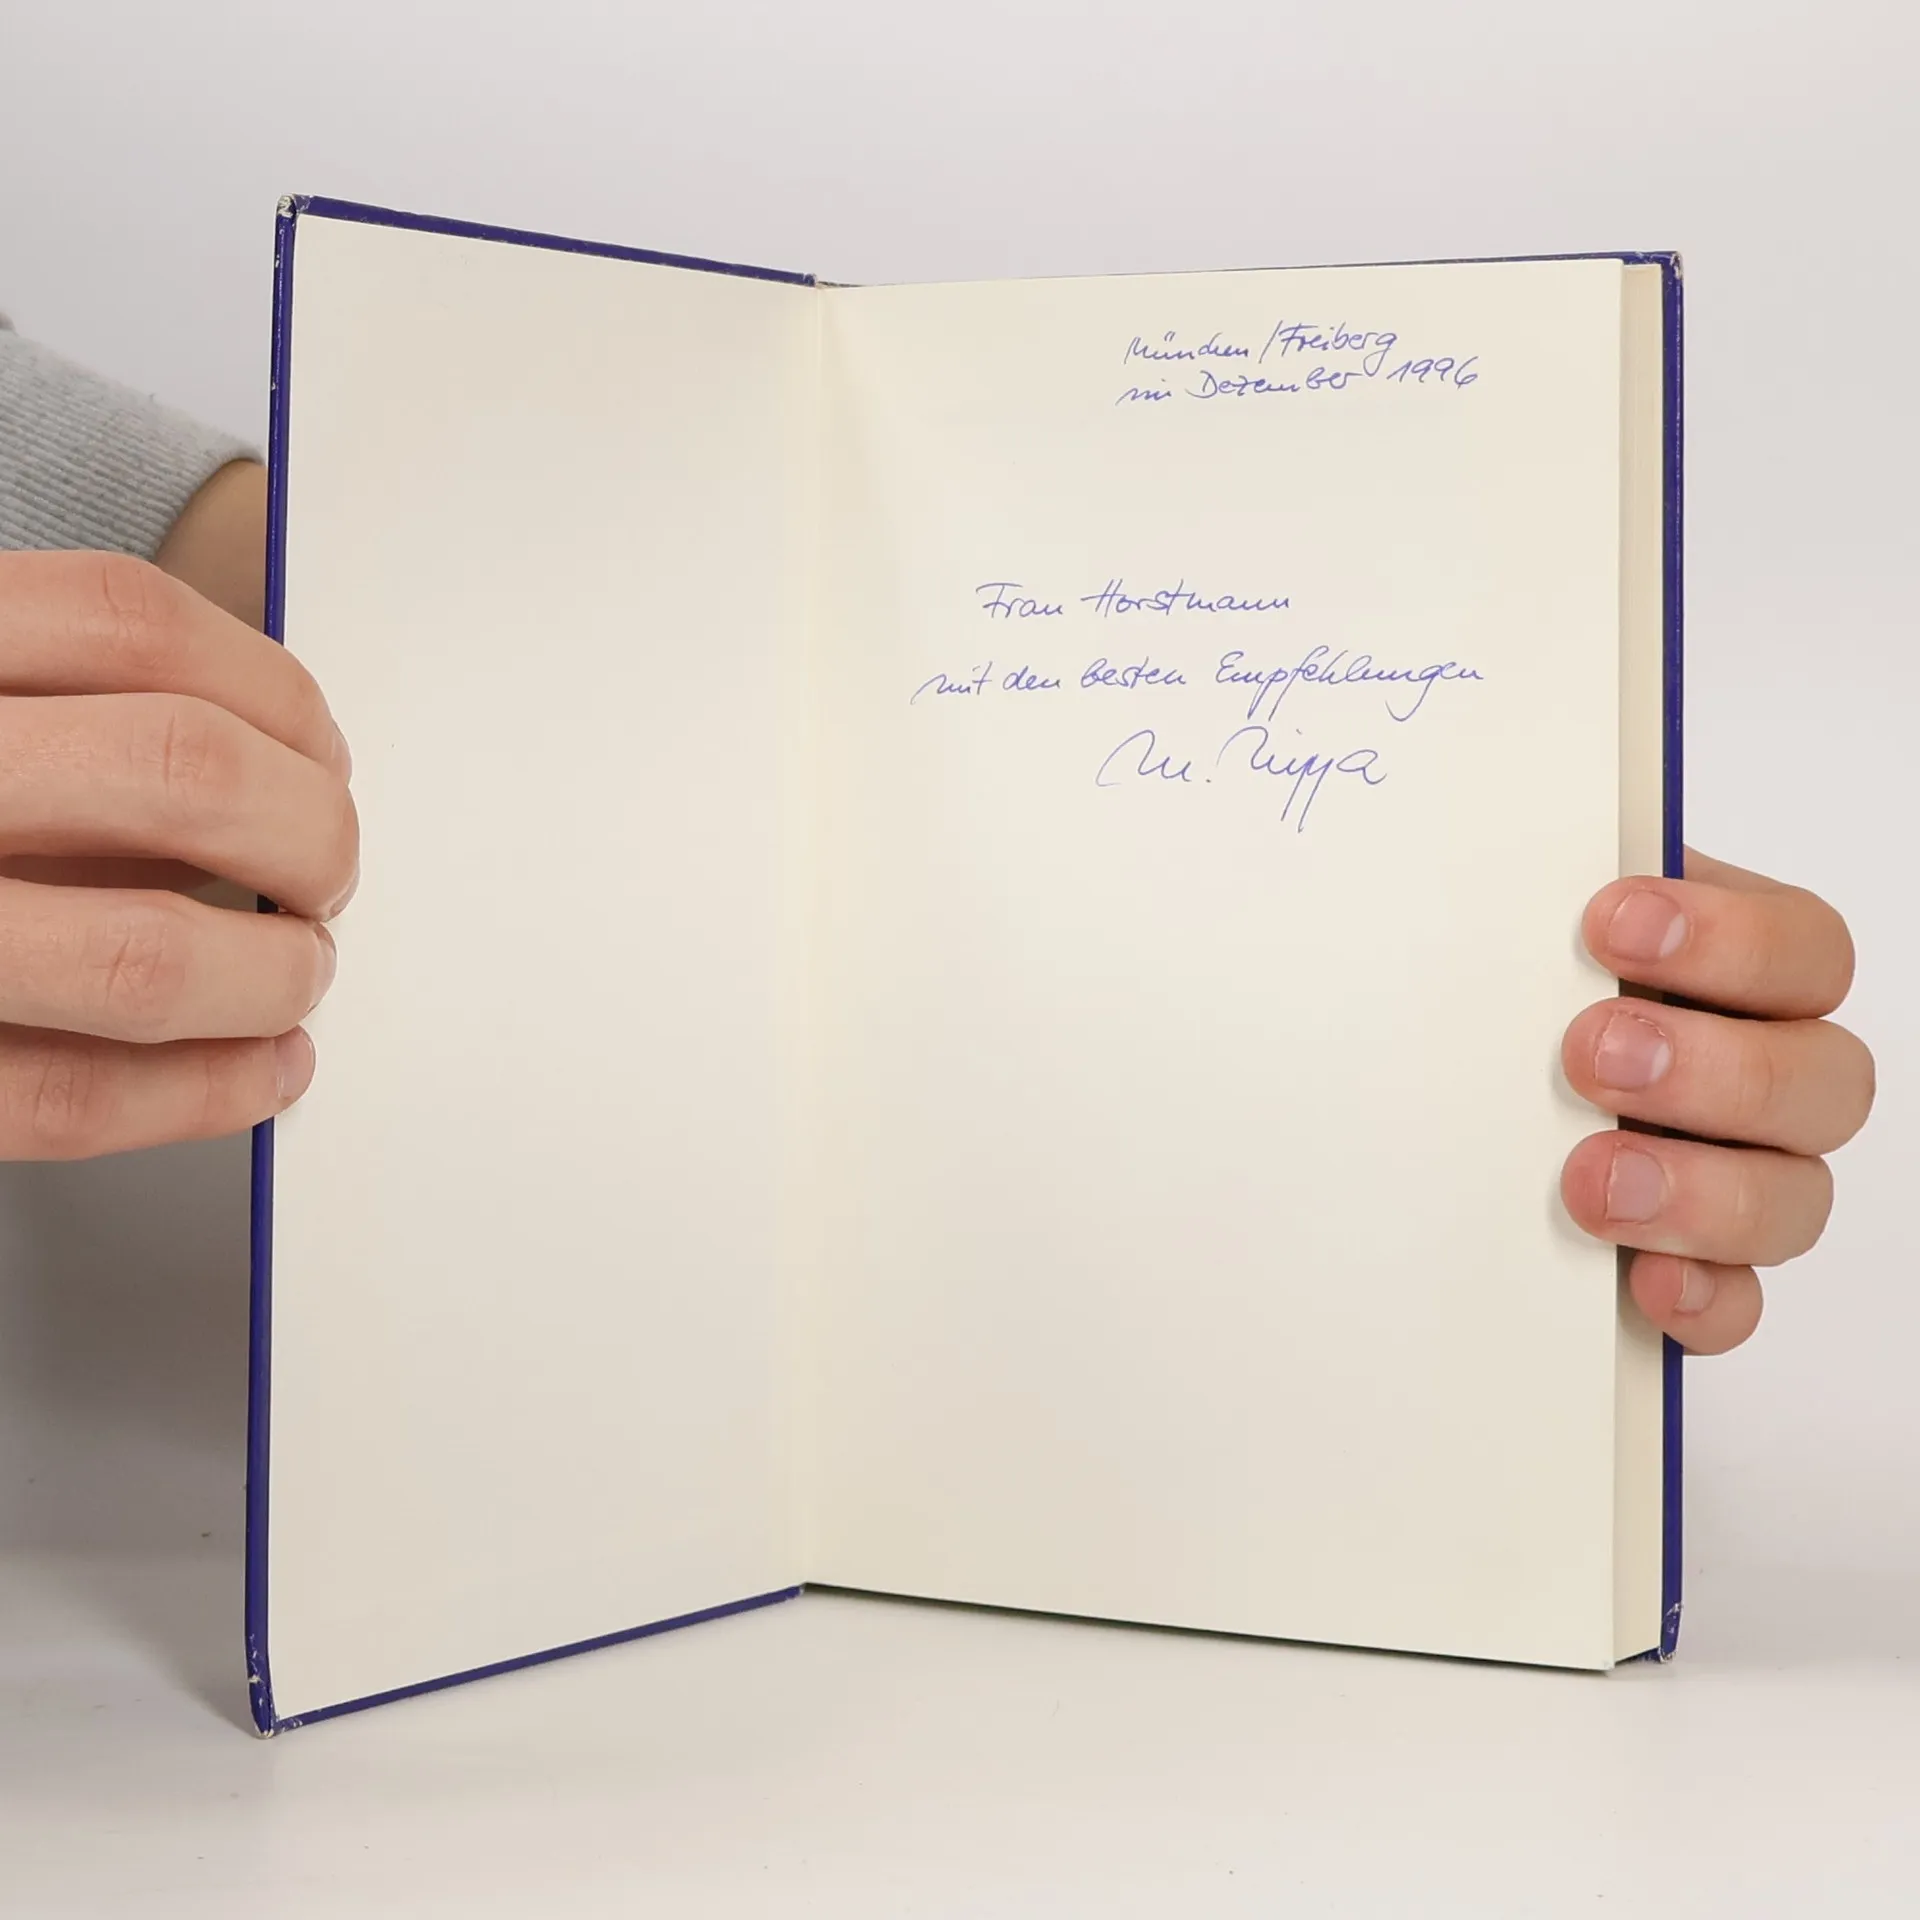 München/Freiberg
im Dezember 1996
Frau Horstmann
mit den besten Empfehlungen
M. Nippa